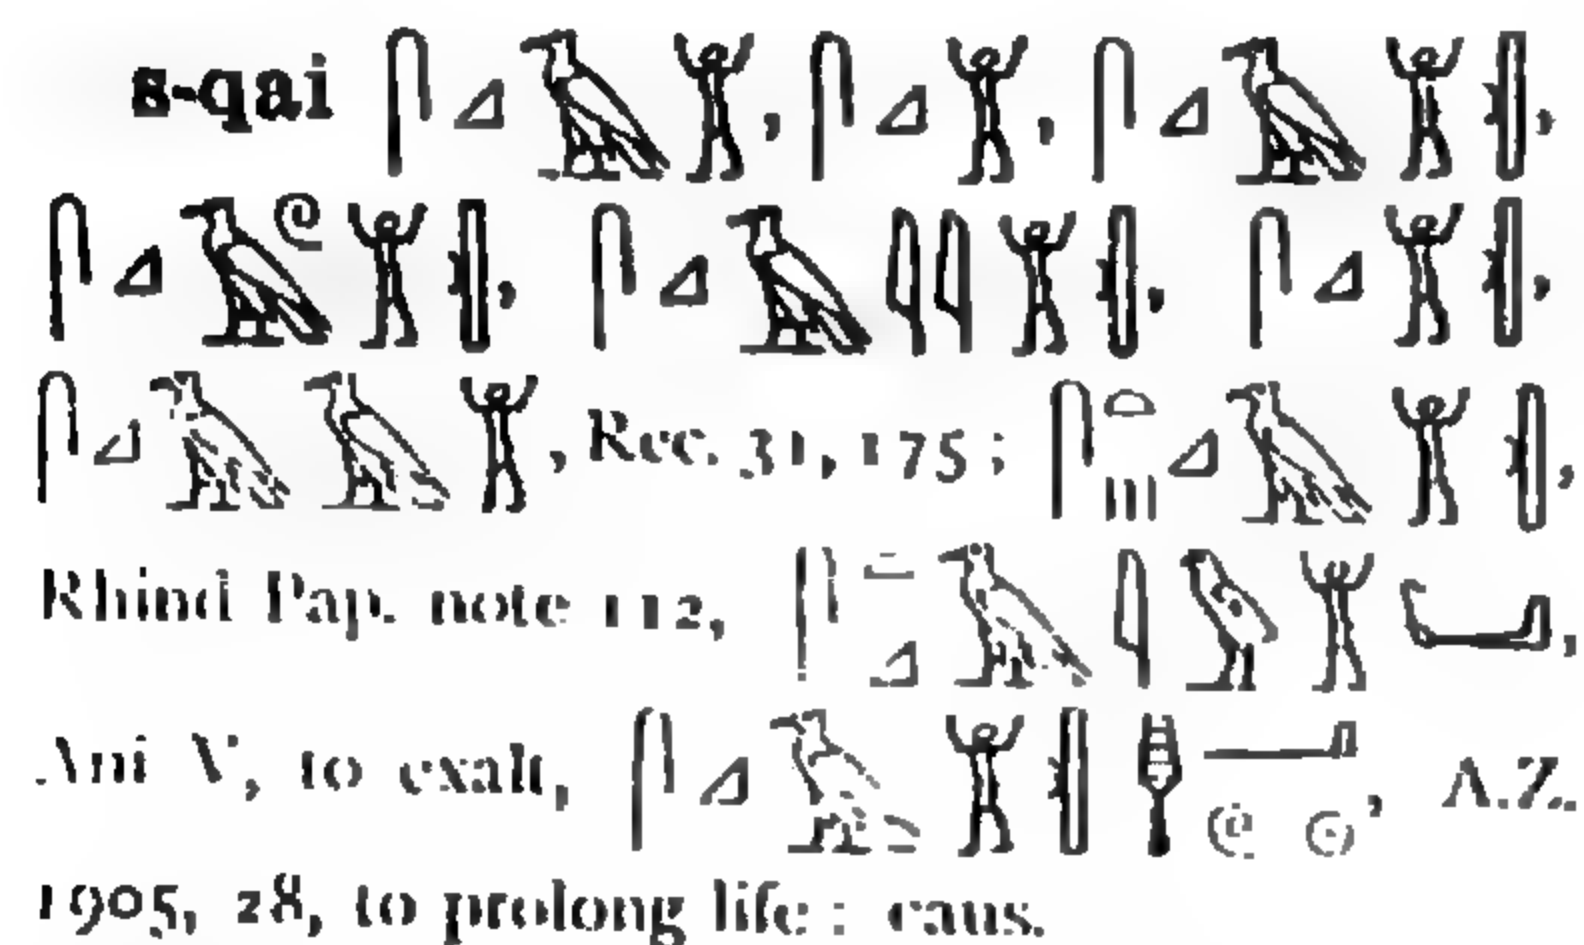 s-qai 𓋴𓈎𓄿𓀠, 𓋴𓈎𓀠, 𓋴𓈎𓄿𓀠𓏜,
𓋴𓈎𓄿𓏲𓀠𓏜, 𓋴𓈎𓄿𓇌𓀠𓏜, 𓋴𓈎𓀠𓏜,
𓋴𓈎𓄿𓄿𓀠, Rec. 31, 175; 𓋴𓏏𓏥𓈎𓄿𓀠𓏜,
Rhind Pap. note 112, 𓋴𓈎𓄿𓇋𓅱𓀠,
Ani V, to exalt, 𓋴𓈎𓄿𓀠𓏜𓊢𓂝𓏲𓇳, A.Z.
1905, 28, to prolong life: caus.